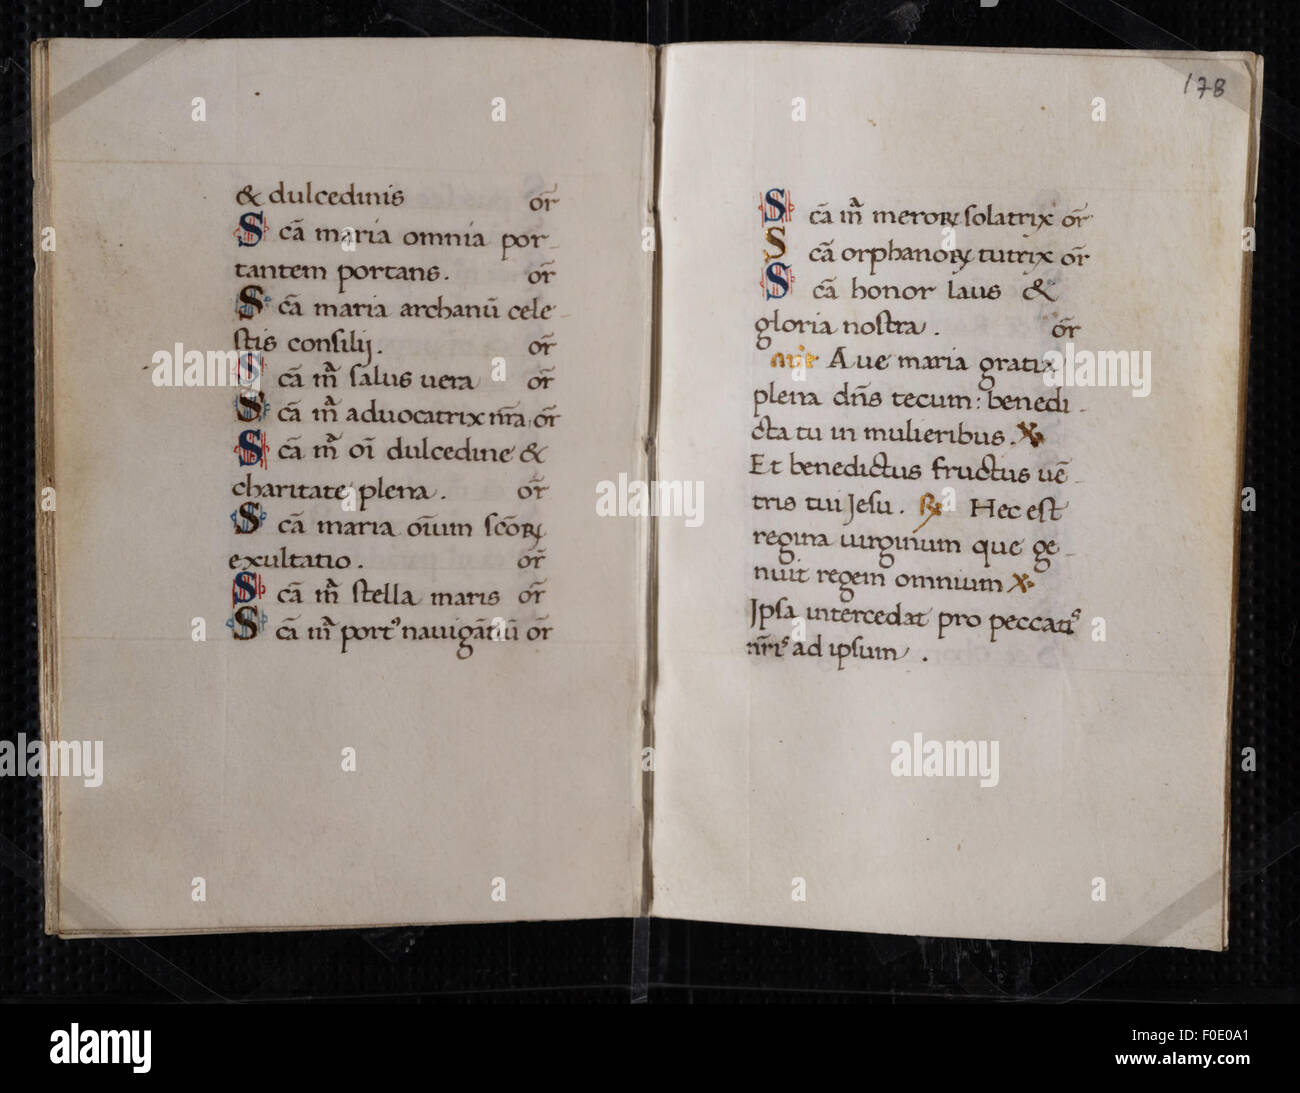 & dulcedinis or̄
Sca̅ maria omnia por-
tantem portans. or̄
Sca̅ maria archanu̅ cele-
stis consilij. or̄
Sca̅ m̅a salus uera or̄
Sca̅ m̅a aduocatrix nr̅a or̄
Sca̅ m̅a oi̅ dulcedine &
charitate plena. or̄
Sca̅ maria oi̅um sco̅ꝝ
exultatio. or̄
Sca̅ m̅a stella maris or̄
Sca̅ m̅a port⁹ nauiga̅tiu̅ or̄
178
Sca̅ m̅a meroꝝ solatrix or̄
Sca̅ orphanoꝝ tutrix or̄
Sca̅ honor laus &
gloria nostra. or̄
Aue maria gratia
plena dn̅s tecum: benedi-
cta tu in mulieribus. ꝟ
Et benedictus fructus ue̅-
tris tui Jesu. ℟ Hec est
regina uirginum que ge-
nuit regem omnium ꝟ
Ipsa intercedat pro peccatis
nr̅is ad ipsum.
alamy stock photo
alamy
Image ID: F0E0A1
www.alamy.com